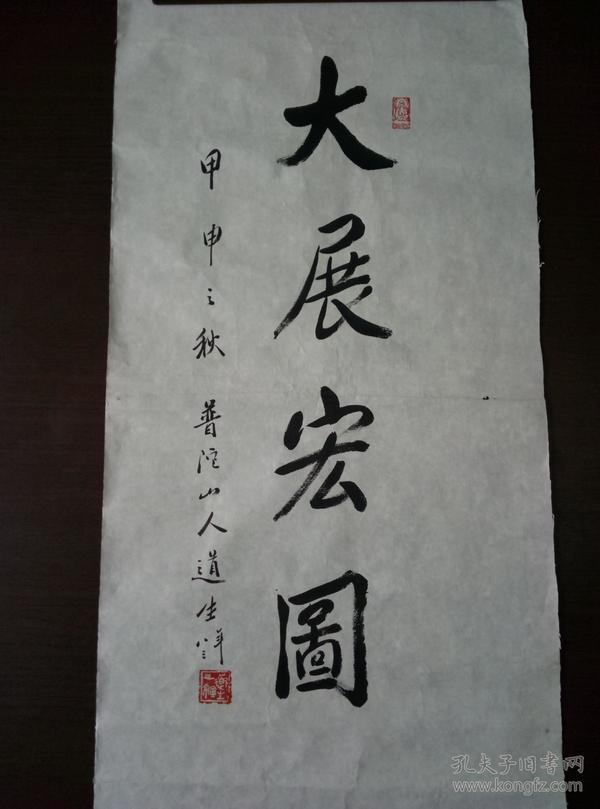 大展宏圖
甲申之秋 普陀山人道生
孔夫子旧书网
www.kongfz.com